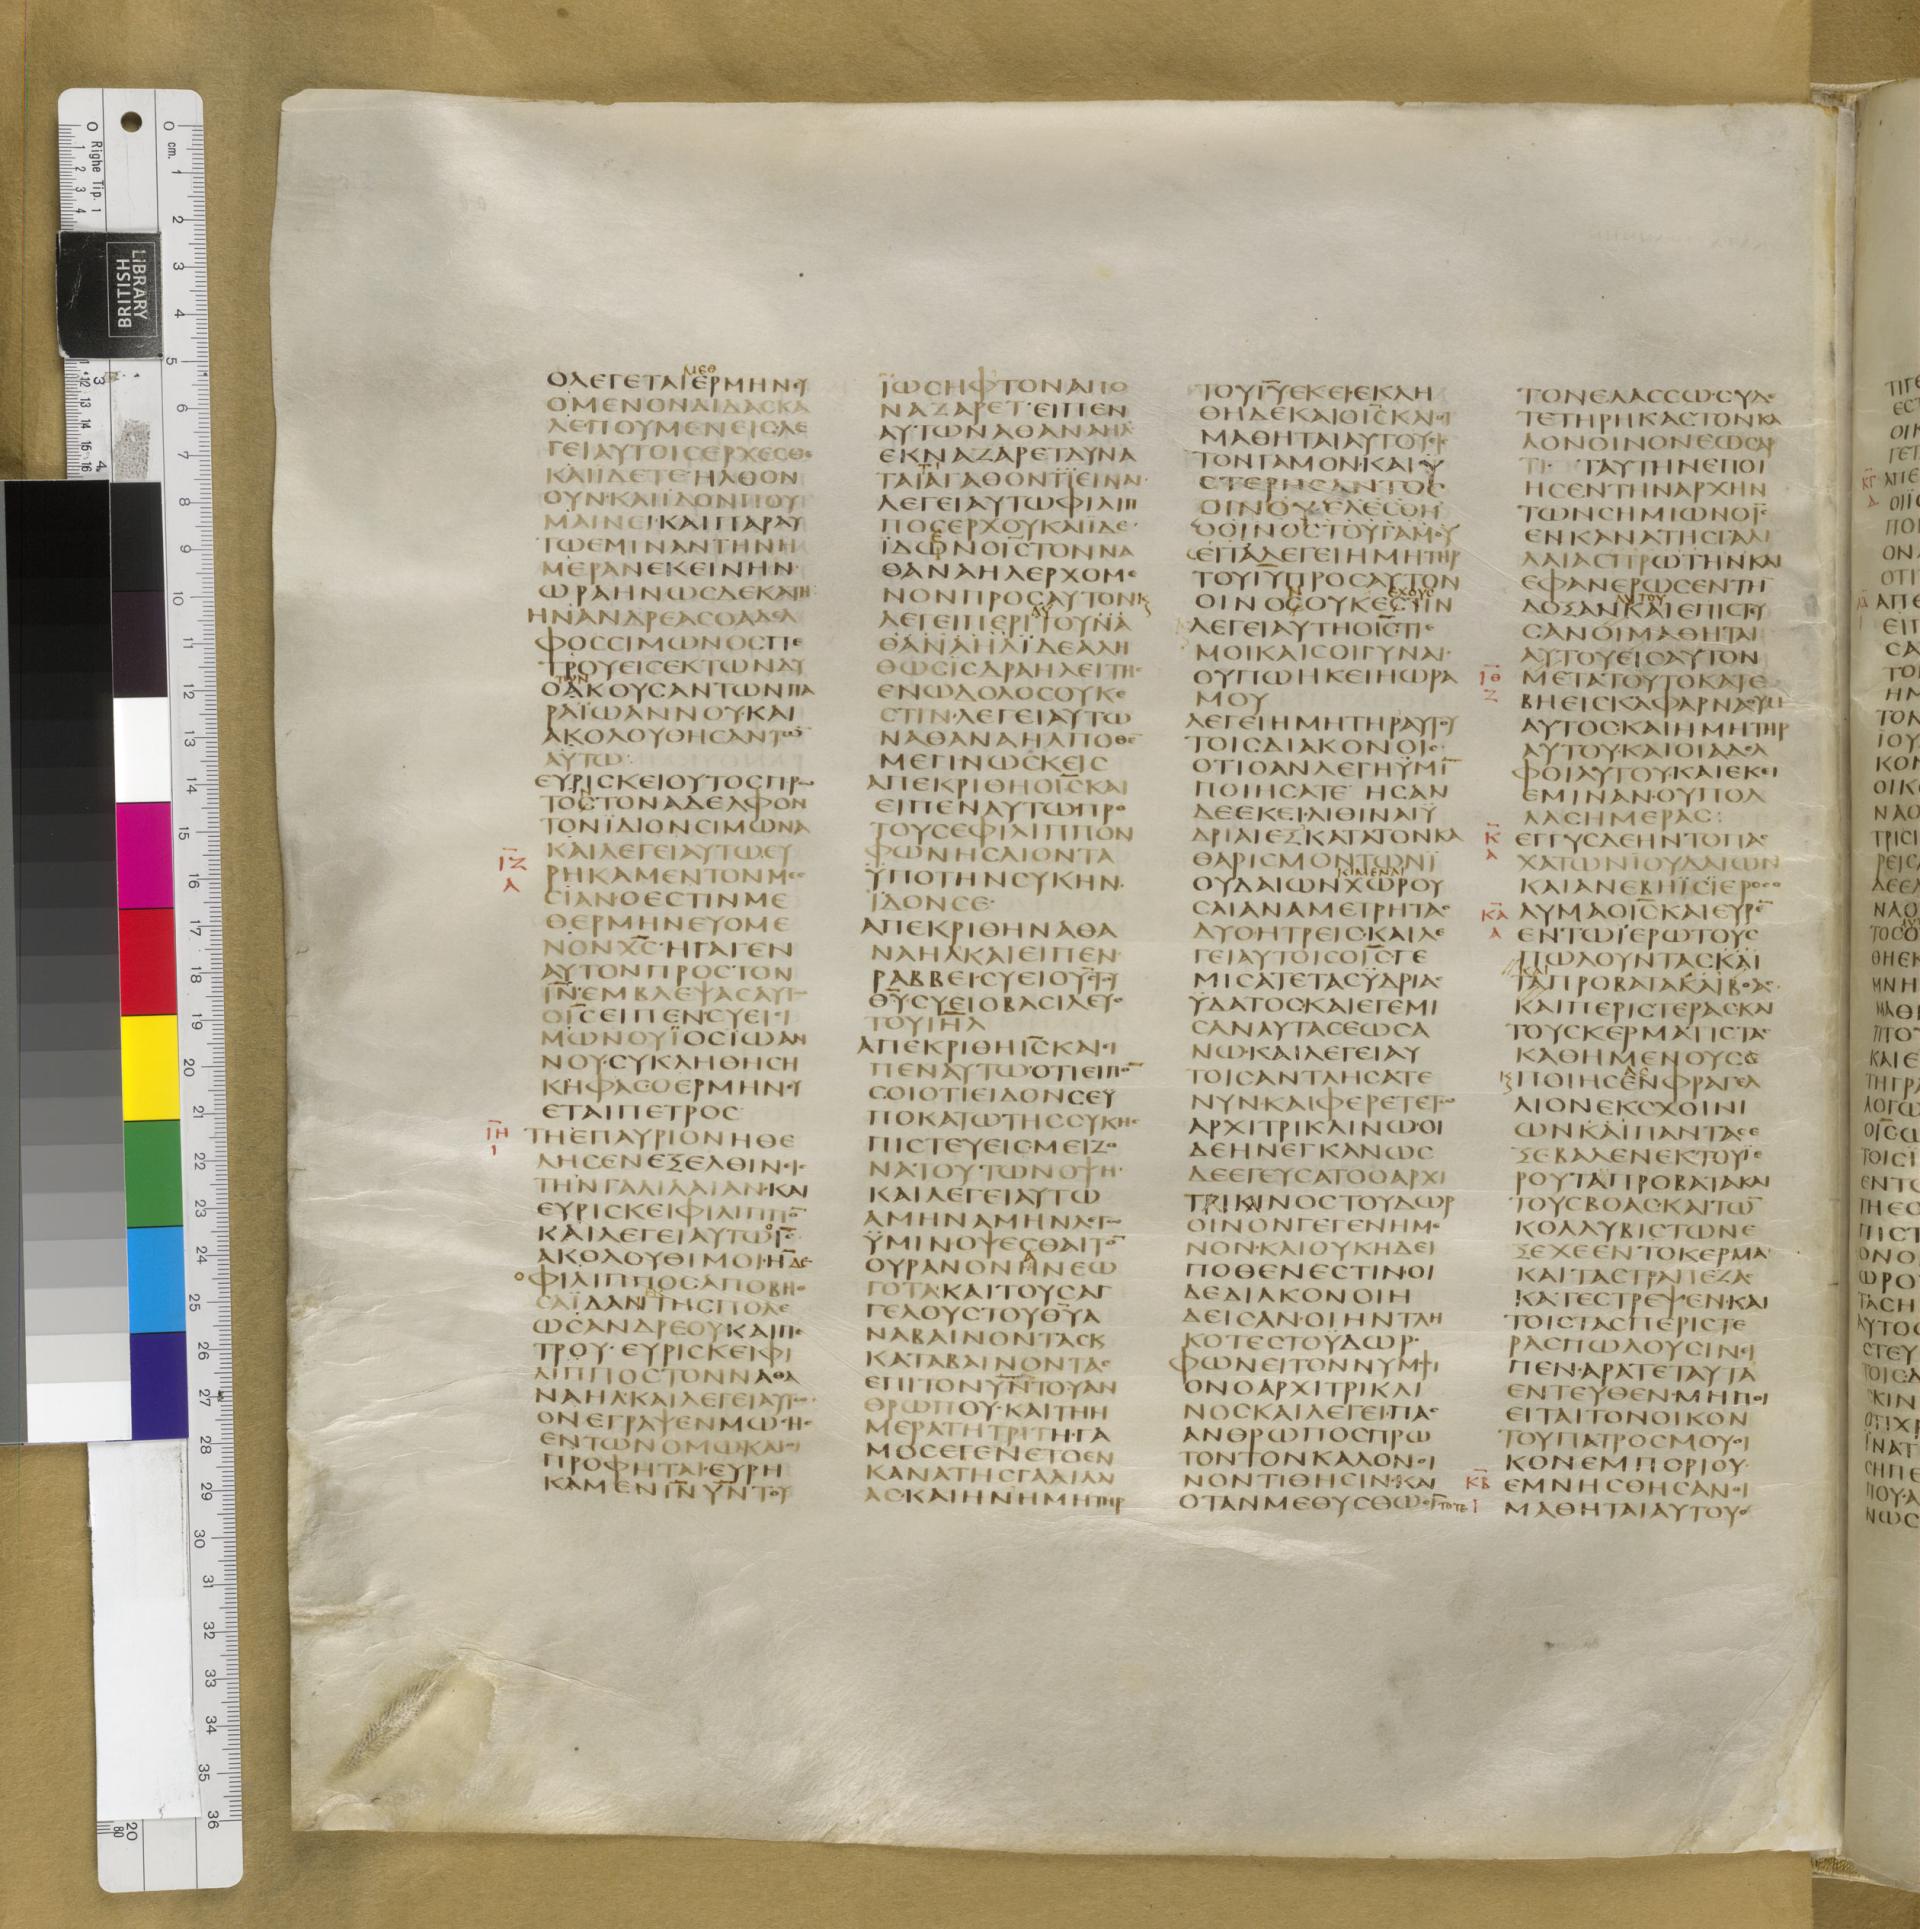 ΟΛΕΓΕΤΑΙΕΡΜΗΝΥ
ΟΜΕΝΟΝΔΙΔΑCΚΑ
ΛΕΠΟΥΜΕΝΕΙCΛΕ
ΓΕΙΑΥΤΟΙCΕΡΧΕCΘΕ
ΚΑΙΙΔΕΤΕ·ΗΛΘΟΝ
ΟΥΝ·ΚΑΙΪΔΟΝΠΟΥ
ΜΑΙΝΕΙ·ΚΑΙΠΑΡΑΥ
ΤΩΕΜΙΝΑΝΤΗΝΗ
ΜΕΡΑΝΕΚΕΙΝΗΝ·
ΩΡΑΗΝΩCΔΕΚΑΤΗ
ΗΝΑΝΔΡΕΑCΟΑΔΕΛ
ΦΟCCΙΜΩΝΟCΠΕ
ΤΡΟΥΕΙCΕΚΤΩΝΔΥ
ΟΑΚΟΥCΑΝΤΩΝΠΑ
ΡΑΪΩΑΝΝΟΥ·ΚΑΙ
ΑΚΟΛΟΥΘΗCΑΝΤΩ̅
ΑΥΤΩ·
ΕΥΡΙCΚΕΙΟΥΤΟCΠΡΩ
ΤΟCΤΟΝΑΔΕΛΦΟΝ
ΤΟΝΪΔΙΟΝCΙΜΩΝΑ
ΚΑΙΛΕΓΕΙΑΥΤΩ·ΕΥ
ΡΗΚΑΜΕΝΤΟΝΜΕC
CΙΑΝ·ΟΕCΤΙΝΜΕ
ΘΕΡΜΗΝΕΥΟΜΕ
ΝΟΝΧ̅C̅·ΗΓΑΓΕΝ
ΑΥΤΟΝΠΡΟCΤΟΝ
Ι̅Ν̅·ΕΜΒΛΕΨΑCΑΥΤΩ
ΟΙ̅C̅ΕΙΠΕΝ·CΥΕΙCΙ
ΜΩΝΟΥΪΟCΪΩΑΝ
ΝΟΥ·CΥΚΛΗΘΗCΗ
ΚΗΦΑC·ΟΕΡΜΗΝΕΥ
ΕΤΑΙΠΕΤΡΟC
ΤΗΕΠΑΥΡΙΟΝΗΘΕ
ΛΗCΕΝΕΞΕΛΘΙΝΕΙC
ΤΗΝΓΑΛΙΛΑΙΑΝ·ΚΑΙ
ΕΥΡΙCΚΕΙΦΙΛΙΠΠΟ̅
ΚΑΙΛΕΓΕΙΑΥΤΩΟΙ̅C̅
ΑΚΟΛΟΥΘΙΜΟΙ·Η̅ΔΕ
ΟΦΙΛΙΠΠΟCΑΠΟΒΗΘ
CΑΪΔΑΝΤΗCΠΟΛΕ
ΩCΑΝΔΡΕΟΥΚΑΙΠΕ
ΤΡΟΥ·ΕΥΡΙCΚΕΙΦΙ
ΛΙΠΠΟCΤΟΝΝΑΘΑ
ΝΑΗΛ·ΚΑΙΛΕΓΕΙΑΥΤΩ
ΟΝΕΓΡΑΨΕΝΜΩΥCΗC
ΕΝΤΩΝΟΜΩΚΑΙΟΙ
ΠΡΟΦΗΤΑΙ·ΕΥΡΗ
ΚΑΜΕΝΙ̅Ν̅Υ̅Ν̅ΤΟΥ
ΪΩCΗΦΤΟΝΑΠΟ
ΝΑΖΑΡΕΤ·ΕΙΠΕΝ
ΑΥΤΩΝΑΘΑΝΑΗΛ
ΕΚΝΑΖΑΡΕΤΔΥΝΑ
ΤΑΙΑΓΑΘΟΝΤΪΕΙΝΑΙ
ΛΕΓΕΙΑΥΤΩΦΙΛΙΠ
ΠΟCΕΡΧΟΥΚΑΙΪΔΕ·
ΪΔΩΝΟΙ̅C̅ΤΟΝΝΑ
ΘΑΝΑΗΛΕΡΧΟΜΕ
ΝΟΝΠΡΟCΑΥΤΟΝΚ
ΛΕΓΕΙΠΕΡΙΤΟΥΝΑ
ΘΑΝΑΗΛ·ΪΔΕΑΛΗ
ΘΩCΪCΔΡΑΗΛΕΙΤΗC
ΕΝΩΔΟΛΟCΟΥΚΕ
CΤΙΝ·ΛΕΓΕΙΑΥΤΩ
ΝΑΘΑΝΑΗΛΠΟΘΕ̅
ΜΕΓΙΝΩCΚΕΙC
ΑΠΕΚΡΙΘΗΟΙ̅C̅ΚΑΙ
ΕΙΠΕΝΑΥΤΩ·ΠΡΟ
ΤΟΥCΕΦΙΛΙΠΠΟΝ
ΦΩΝΗCΑΙΟΝΤΑ
ΫΠΟΤΗΝCΥΚΗΝ·
ΪΔΟΝCΕ·
ΑΠΕΚΡΙΘΗΝΑΘΑ
ΝΑΗΛΚΑΙΕΙΠΕΝ·
ΡΑΒΒΕΙ·CΥΕΙΟΥ̅C̅ΤΟΥ
Θ̅Υ̅·CΥΕΙΟΒΑCΙΛΕΥC
ΤΟΥΙ̅Η̅Λ̅
ΑΠΕΚΡΙΘΗΙ̅C̅ΚΑΙΕΙ
ΠΕΝΑΥΤΩ·ΟΤΙΕΙΠΟ̅
CΟΙΟΤΙΕΙΔΟΝCΕΫ
ΠΟΚΑΤΩΤΗCCΥΚΗC
ΠΙCΤΕΥΕΙC·ΜΕΙΖΟ
ΝΑΤΟΥΤΩΝΟΨΗ·
ΚΑΙΛΕΓΕΙΑΥΤΩ
ΑΜΗΝΑΜΗΝΛΕΓΩ
ΫΜΙΝΟΨΕCΘΑΙΤΟ̅
ΟΥΡΑΝΟΝΗΝΕΩ
ΓΟΤΑΚΑΙΤΟΥCΑΓ
ΓΕΛΟΥCΤΟΥΘ̅Υ̅Α
ΝΑΒΑΙΝΟΝΤΑCΚ
ΚΑΤΑΒΑΙΝΟΝΤΑC
ΕΠΙΤΟΝΥ̅Ν̅ΤΟΥΑΝ
ΘΡΩΠΟΥ·ΚΑΙΤΗΗ
ΜΕΡΑΤΗΤΡΙΤΗ·ΓΑ
ΜΟCΕΓΕΝΕΤΟΕΝ
ΚΑΝΑΤΗCΓΑΛΙΛΑΙ
ΑC·ΚΑΙΗΝΗΜΗΤΗΡ
ΤΟΥΙ̅Υ̅ΕΚΕΙ·ΕΚΛΗ
ΘΗΔΕΚΑΙΟΙ̅C̅ΚΑΙΟΙ
ΜΑΘΗΤΑΙΑΥΤΟΥΕΙC
ΤΟΝΓΑΜΟΝ·ΚΑΙΫ
CΤΕΡΗCΑΝΤΟC
ΟΙΝΟΥ·ΕΛΕCΘΗ
ΟΟΙΝΟCΤΟΥΓΑΜΟΥ
ΕΙΤΑΛΕΓΕΙΗΜΗΤΗΡ
ΤΟΥΙ̅Υ̅ΠΡΟCΑΥΤΟΝ
ΟΙΝΟCΟΥΚΕCΤΙΝ
ΛΕΓΕΙΑΥΤΗΟΙ̅C̅ΤΙΕ
ΜΟΙΚΑΙCΟΙΓΥΝΑΙ·
ΟΥΠΩΗΚΕΙΗΩΡΑ
ΜΟΥ
ΛΕΓΕΙΗΜΗΤΗΡΑΥΤΟΥ
ΤΟΙCΔΙΑΚΟΝΟΙC·
ΟΤΙΟΑΝΛΕΓΗΫΜΙ̅
ΠΟΙΗCΑΤΕ·ΗCΑΝ
ΔΕΕΚΕΙ·ΛΙΘΙΝΑΙΫ
ΔΡΙΑΙΕΞΚΑΤΑΤΟΝΚΑ
ΘΑΡΙCΜΟΝΤΩΝΪ
ΟΥΔΑΙΩΝΧΩΡΟΥ
CΑΙΑΝΑΜΕΤΡΗΤΑC
ΔΥΟΗΤΡΕΙC·ΚΑΙΛΕ
ΓΕΙΑΥΤΟΙCΟΙ̅C̅ΓΕ
ΜΙCΑΤΕΤΑCΫΔΡΙΑC
ΫΔΑΤΟC·ΚΑΙΕΓΕΜΙ
CΑΝΑΥΤΑCΕΩCΑ
ΝΩ·ΚΑΙΛΕΓΕΙΑΥ
ΤΟΙCΑΝΤΛΗCΑΤΕ
ΝΥΝ·ΚΑΙΦΕΡΕΤΕΤΩ
ΑΡΧΙΤΡΙΚΛΙΝΩ·ΟΙ
ΔΕΗΝΕΓΚΑΝΩC
ΔΕΕΓΕΥCΑΤΟΟΑΡΧΙ
ΤΡΙΚΛΙΝΟCΤΟΥΔΩΡ
ΟΙΝΟΝΓΕΓΕΝΗΜΕ
ΝΟΝ·ΚΑΙΟΥΚΗΔΕΙ
ΠΟΘΕΝΕCΤΙΝ·ΟΙ
ΔΕΔΙΑΚΟΝΟΙΗ
ΔΕΙCΑΝ·ΟΙΗΝΤΛΗ
ΚΟΤΕCΤΟΫΔΩΡ·
ΦΩΝΕΙΤΟΝΝΥΜΦΙ
ΟΝΟΑΡΧΙΤΡΙΚΛΙ
ΝΟCΚΑΙΛΕΓΕΙ·ΠΑC
ΑΝΘΡΩΠΟCΠΡΩ
ΤΟΝΤΟΝΚΑΛΟΝΟΙ
ΝΟΝΤΙΘΗCΙΝ·ΚΑΙ
ΟΤΑΝΜΕΘΥCΘΩCΙ̅ΤΟΤΕ
ΤΟΝΕΛΑCCΩ·CΥΔΕ
ΤΕΤΗΡΗΚΑCΤΟΝΚΑ
ΛΟΝΟΙΝΟΝΕΩCΑΡ
ΤΙ· ΤΑΥΤΗΝΕΠΟΙ
ΗCΕΝΤΗΝΑΡΧΗΝ
ΤΩΝCΗΜΙΩΝΟΙ̅C̅
ΕΝΚΑΝΑΤΗCΓΑΛΙ
ΛΑΙΑCΠΡΩΤΗΝΚΑΙ
ΕΦΑΝΕΡΩCΕΝΤΗ̅
ΔΟΞΑΝΚΑΙΕΠΙCΤΕΥ
CΑΝΟΙΜΑΘΗΤΑΙ
ΑΥΤΟΥΕΙCΑΥΤΟΝ
ΜΕΤΑΤΟΥΤΟΚΑΤΕ
ΒΗΕΙCΚΑΦΑΡΝΑΟΥΜ
ΑΥΤΟC·ΚΑΙΗΜΗΤΗΡ
ΑΥΤΟΥ·ΚΑΙΟΙΑΔΕΛ
ΦΟΙΑΥΤΟΥ·ΚΑΙΕΚΕΙ
ΕΜΙΝΑΝ·ΟΥΠΟΛ
ΛΑCΗΜΕΡΑC:
ΕΓΓΥCΔΕΗΝΤΟΠΑC
ΧΑΤΩΝΪΟΥΔΑΙΩΝ
ΚΑΙΑΝΕΒΗΪCΪΕΡΟCΟ
ΛΥΜΑΟΙ̅C̅ΚΑΙΕΥΡΕ̅
ΕΝΤΩΪΕΡΩΤΟΥC
ΠΩΛΟΥΝΤΑCΚΑΙ
ΤΑΠΡΟΒΑΤΑΚΑΙΒΟΑC
ΚΑΙΠΕΡΙCΤΕΡΑCΚΑΙ
ΤΟΥCΚΕΡΜΑΤΙCΤΑC
ΚΑΘΗΜΕΝΟΥCC
ΠΟΙΗCΕΝΦΡΑΓΕΛ
ΛΙΟΝΕΚCΧΟΙΝΙ
ΩΝΚΑΙΠΑΝΤΑCΕ
ΞΕΒΑΛΕΝΕΚΤΟΥΪΕ
ΡΟΥΤΑΠΡΟΒΑΤΑΚΑΙ
ΤΟΥCΒΟΑC·ΚΑΙΤΩ̅
ΚΟΛΛΥΒΙCΤΩΝΕ
ΞΕΧΕΕΝΤΟΚΕΡΜΑ
ΚΑΙΤΑCΤΡΑΠΕΖΑC
ΚΑΤΕCΤΡΕΨΕΝ·ΚΑΙ
ΤΟΙCΤΑCΠΕΡΙCΤΕ
ΡΑCΠΩΛΟΥCΙΝΕΙ
ΠΕΝ·ΑΡΑΤΕΤΑΥΤΑ
ΕΝΤΕΥΘΕΝ·ΜΗΠΟΙ
ΕΙΤΑΙΤΟΝΟΙΚΟΝ
ΤΟΥΠΑΤΡΟCΜΟΥΟΙ
ΚΟΝΕΜΠΟΡΙΟΥ·
ΕΜΝΗCΘΗCΑΝΟΙ
ΜΑΘΗΤΑΙΑΥΤΟΥΟ
BRITISH LIBRARY